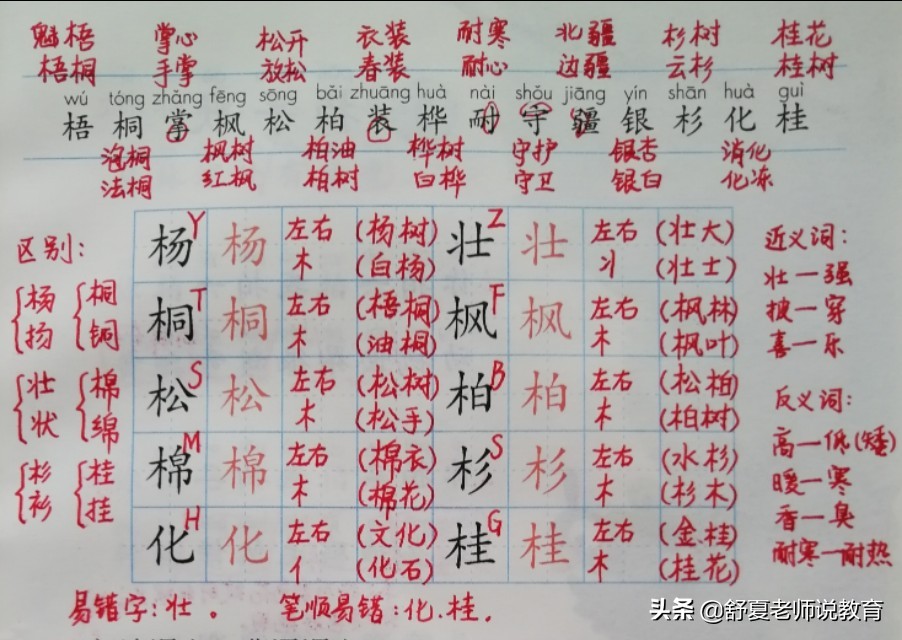 魁梧 掌心 松开 衣装 耐寒 北疆 杉树 桂花
梧桐 手掌 放松 春装 耐心 边疆 云杉 桂树
wú tóng zhǎng fēng sōng bǎi zhuāng huà nài shǒu jiāng yín shān huà guì
梧 桐 掌 枫 松 柏 装 桦 耐 守 疆 银 杉 化 桂
泡桐 枫树 柏油 桦树 守护 银杏 消化
法桐 红枫 柏树 白桦 守卫 银白 化冻
区别:
杨 桐
扬 铜
壮 棉
状 绵
杉 桂
衫 挂
杨 Y 杨 左右 (杨树) 壮 Z 壮 左右 (壮大)
木 (白杨) 丬 (壮士)
桐 T 桐 左右 (梧桐) 枫 F 枫 左右 (枫林)
木 (油桐) 木 (枫叶)
松 S 松 左右 (松树) 柏 B 柏 左右 (松柏)
木 (松手) 木 (柏树)
棉 M 棉 左右 (棉衣) 杉 S 杉 左右 (水杉)
木 (棉花) 木 (杉木)
化 H 化 左右 (文化) 桂 G 桂 左右 (金桂)
亻 (化石) 木 (桂花)
近义词:
壮—强
披—穿
喜—乐
反义词:
高—低(矮)
暖—寒
香—臭
耐寒—耐热
易错字:壮。 笔顺易错:化.桂.
头条 @舒夏老师说教育